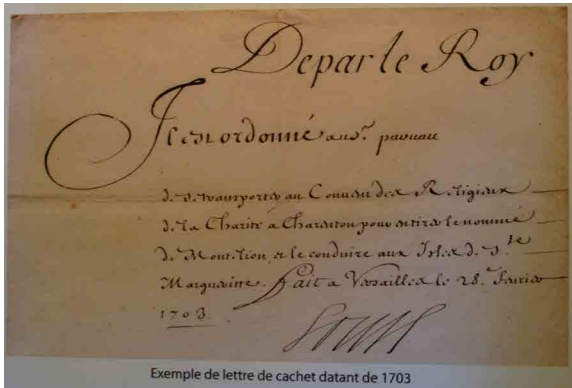 De par le Roy
Il est ordonné au Sr. pauvau
de se transporter au Couvent des Religieux
de la Charité à Charenton pour en tirer le nommé
de Montlion, et le conduire aux Isles de Ste
Marguerite. fait a Versailles le 28e fevrier
1703.
Louis
Exemple de lettre de cachet datant de 1703